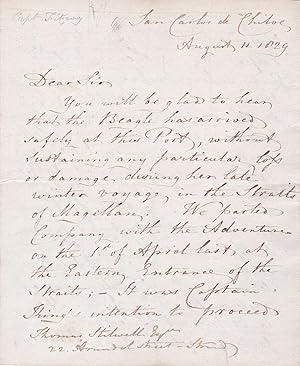 Capt Fitzroy
San Carlos de Chiloe,
August 11. 1829
Dear Sir,
You will be glad to hear
that the Beagle has arrived
safely at this Port, without
sustaining any particular loss
or damage, during her late
winter voyage, in the Straits
of Magellan. We parted
Company with the Adventure
on the 1st of April last, at
the Eastern Entrance of the
Straits; – It was Captain
King's intention to proceed
Thomas Stilwell Esqre
22. Arundel Street – Strand